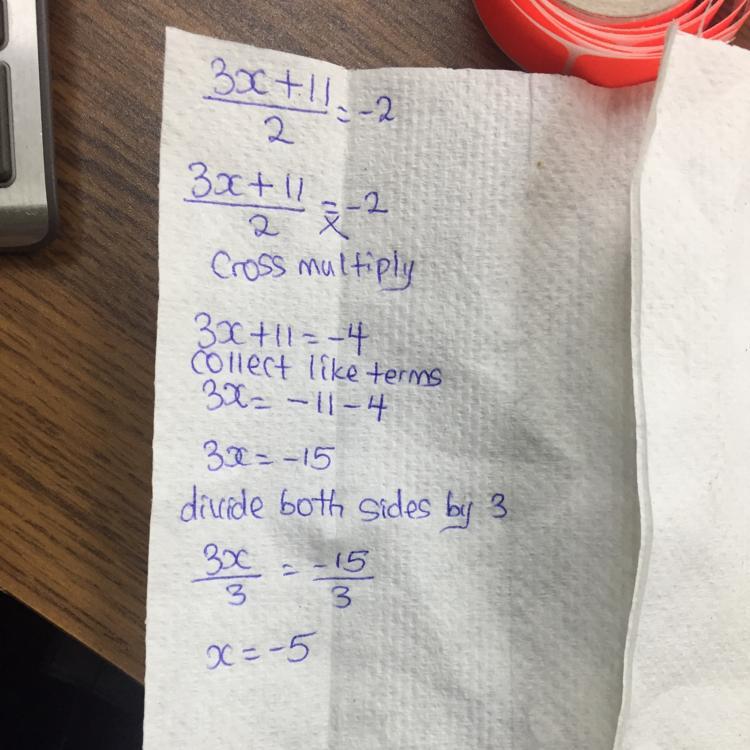 3x+11/2 = -2
3x+11/2 = -2
x
Cross multiply
3x+11 = -4
collect like terms
3x = -11-4
3x = -15
divide both sides by 3
3x/3 = -15/3
x = -5